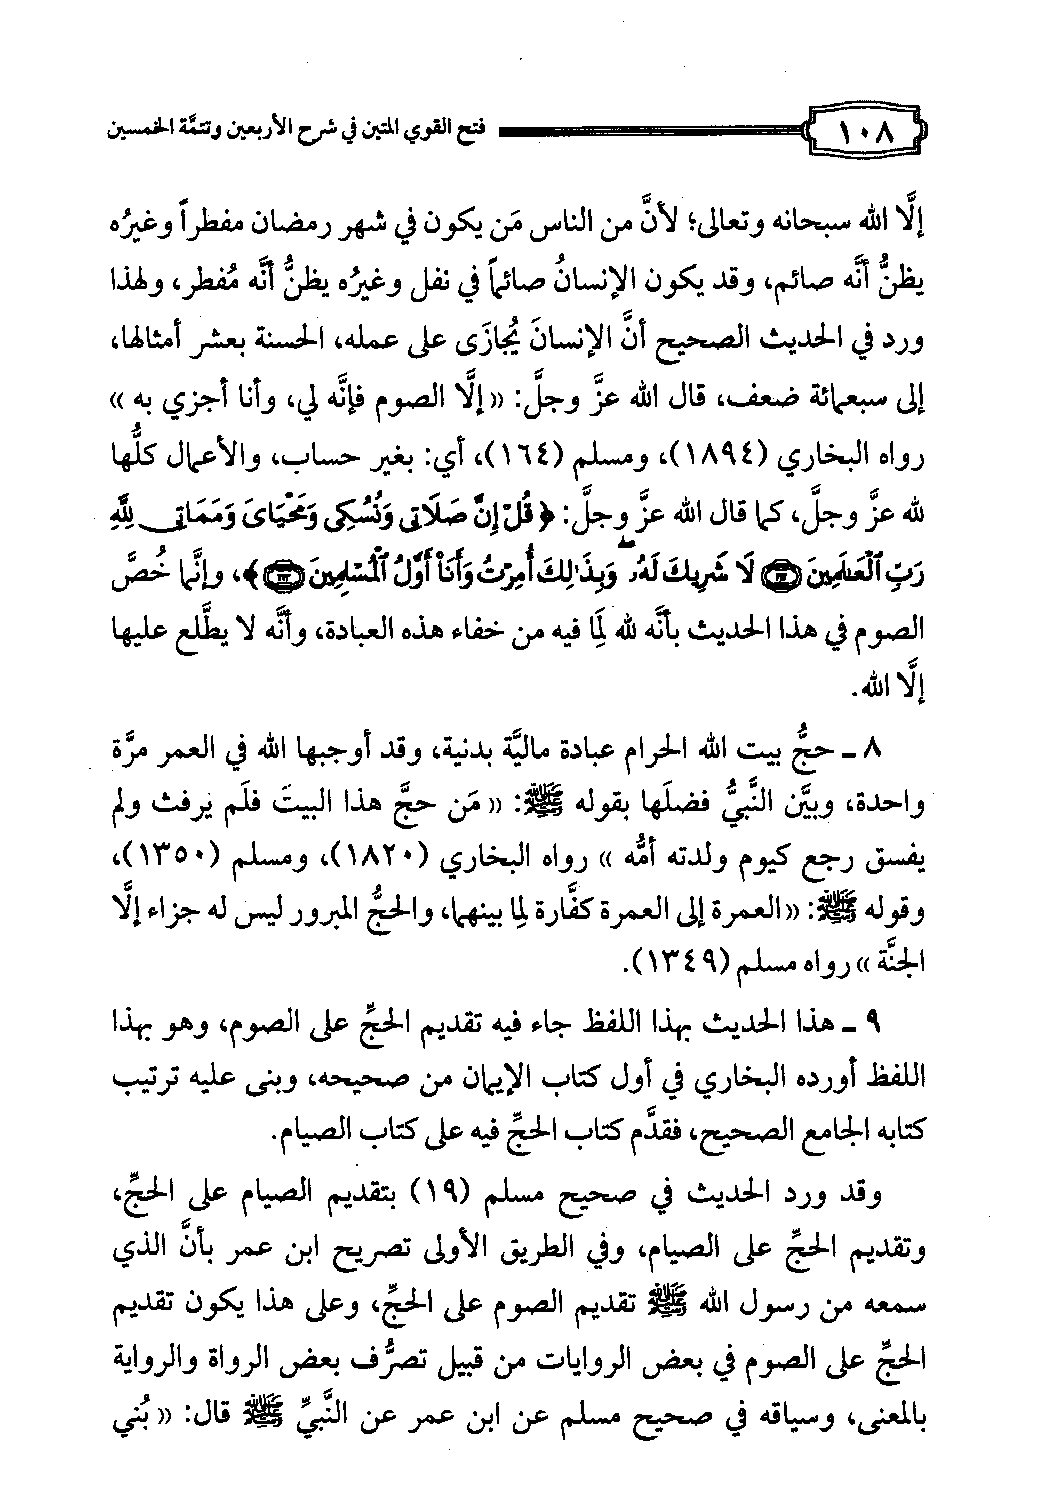 ١٠٨ فتح القوي المتين في شرح الأربعين وتتمَّة الخمسين
إلَّا الله سبحانه وتعالى؛ لأنَّ من الناس مَن يكون في شهر رمضان مفطراً وغيرُه
يظنُّ أنَّه صائم، وقد يكون الإنسانُ صائماً في نفل وغيرُه يظنُّ أنَّه مُفطر، ولهذا
ورد في الحديث الصحيح أنَّ الإنسانَ يُجازَى على عمله، الحسنة بعشر أمثالها،
إلى سبعمائة ضعف، قال الله عزَّ وجلَّ: « إلَّا الصوم فإنَّه لي، وأنا أجزي به »
رواه البخاري (١٨٩٤)، ومسلم (١٦٤)، أي: بغير حساب، والأعمال كلُّها
لله عزَّ وجلَّ، كما قال الله عزَّ وجلَّ: ﴿ قُلْ إِنَّ صَلَاتِى وَنُسُكِى وَمَحْيَاىَ وَمَمَاتِى لِلَّهِ
رَبِّ ٱلْعَـٰلَمِينَ ۝ لَا شَرِيكَ لَهُۥ ۖ وَبِذَٰلِكَ أُمِرْتُ وَأَنَا۠ أَوَّلُ ٱلْمُسْلِمِينَ ۝ ﴾، وإنَّما خُصَّ
الصوم في هذا الحديث بأنَّه لله لِمَا فيه من خفاء هذه العبادة، وأنَّه لا يطَّلع عليها
إلَّا الله.
٨ ـ حجُّ بيت الله الحرام عبادة ماليَّة بدنية، وقد أوجبها الله في العمر مرَّة
واحدة، وبيَّن النَّبيُّ فضلَها بقوله ﷺ: « مَن حجَّ هذا البيتَ فلَم يرفث ولم
يفسق رجع كيوم ولدته أمُّه » رواه البخاري (١٨٢٠)، ومسلم (١٣٥٠)،
وقوله ﷺ: « العمرة إلى العمرة كفَّارة لِما بينهما، والحجُّ المبرور ليس له جزاء إلَّا
الجنَّة » رواه مسلم (١٣٤٩).
٩ ـ هذا الحديث بهذا اللفظ جاء فيه تقديم الحجِّ على الصوم، وهو بهذا
اللفظ أورده البخاري في أول كتاب الإيمان من صحيحه، وبنى عليه ترتيب
كتابه الجامع الصحيح، فقدَّم كتاب الحجِّ فيه على كتاب الصيام.
وقد ورد الحديث في صحيح مسلم (١٩) بتقديم الصيام على الحجِّ،
وتقديم الحجِّ على الصيام، وفي الطريق الأولى تصريح ابن عمر بأنَّ الذي
سمعه من رسول الله ﷺ تقديم الصوم على الحجِّ، وعلى هذا يكون تقديم
الحجِّ على الصوم في بعض الروايات من قبيل تصرُّف بعض الرواة والرواية
بالمعنى، وسياقه في صحيح مسلم عن ابن عمر عن النَّبيِّ ﷺ قال: « بُني